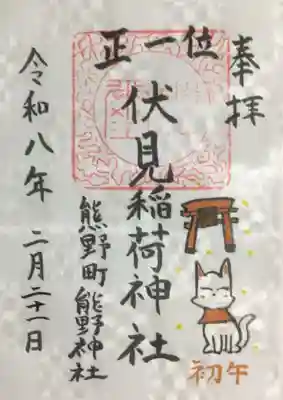 奉拝
正一位
伏見稲荷神社
熊野町熊野神社
令和八年 二月二十一日
初午